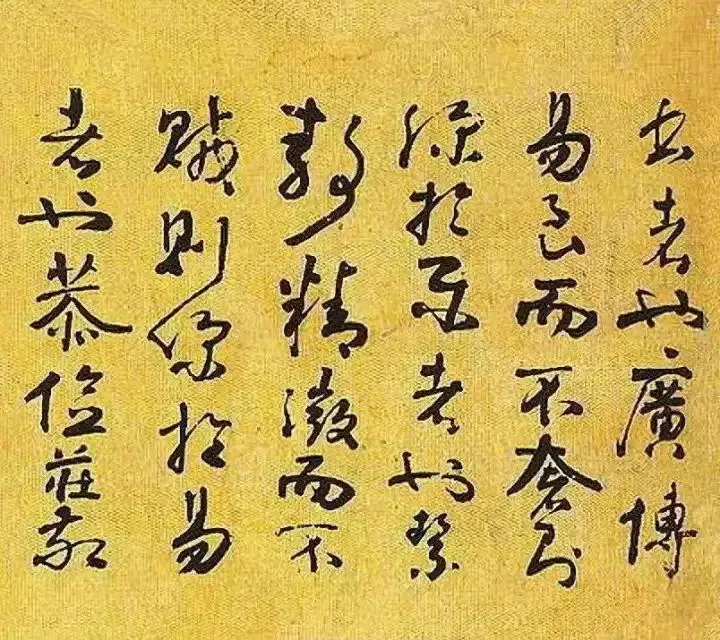 書者也廣博
易良而不奢則
深於樂者也絜
靜精微而不
賊則深於易
者也恭儉莊敬